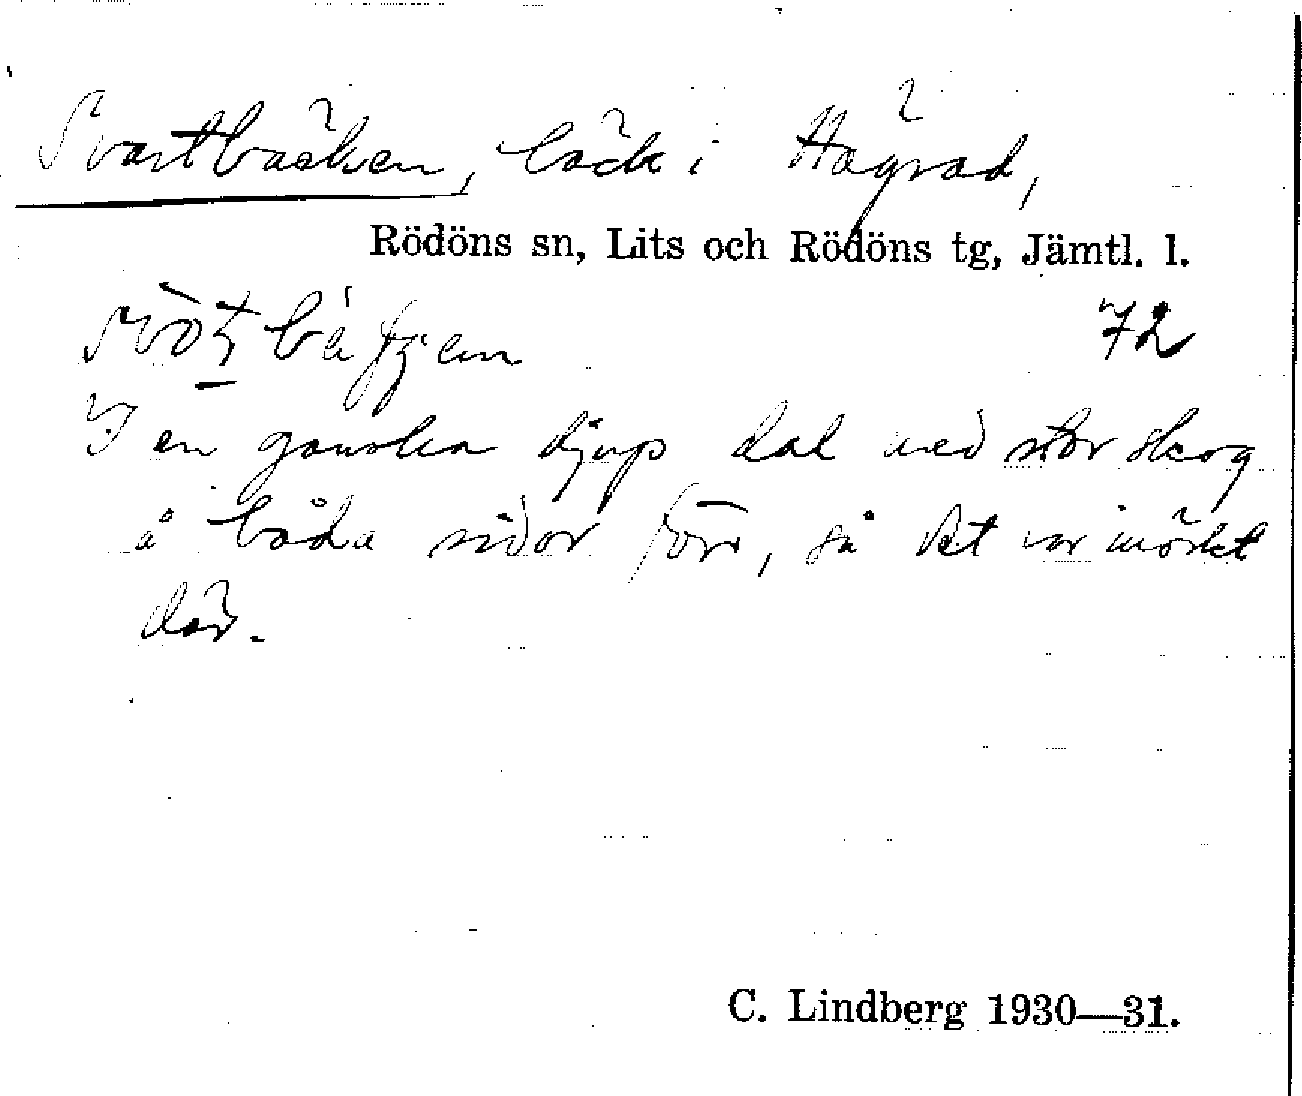 Svartbäcken, bäck i Hägrad,
Rödöns sn, Lits och Rödöns tg, Jämtl. l.
72
I en ganska djup dal med stor skog
å båda sidor förr, så det var mörkt
där.
C. Lindberg 1930—31.